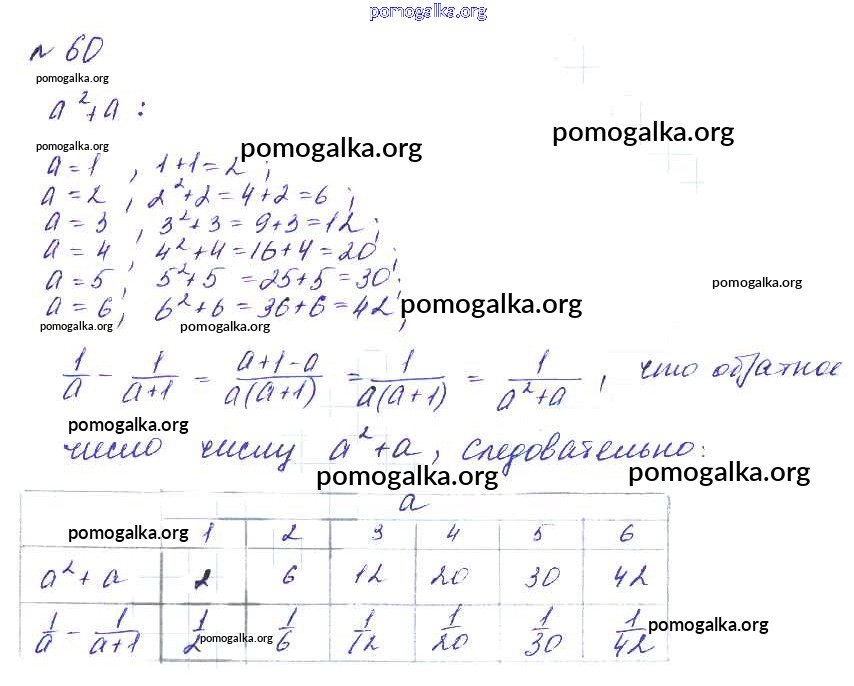 pomogalka.org
№ 60
pomogalka.org
a²+a :
pomogalka.org pomogalka.org pomogalka.org
a = 1 , 1+1=2 ;
a = 2 , 2²+2=4+2=6 ;
a = 3 , 3²+3=9+3=12 ;
a = 4 , 4²+4=16+4=20 ;
a = 5 , 5²+5=25+5=30 ;
pomogalka.org
a = 6 , 6²+6=36+6=42 ;
pomogalka.org
pomogalka.org pomogalka.org
1/a - 1/(a+1) = (a+1-a)/(a(a+1)) = 1/(a(a+1)) = 1/(a²+a) , что обратное
pomogalka.org
число числу a²+a, следовательно:
pomogalka.org pomogalka.org
a
pomogalka.org 1 2 3 4 5 6
a²+a 2 6 12 20 30 42
1/a - 1/(a+1) 1/2 1/6 1/12 1/20 1/30 1/42
pomogalka.org pomogalka.org